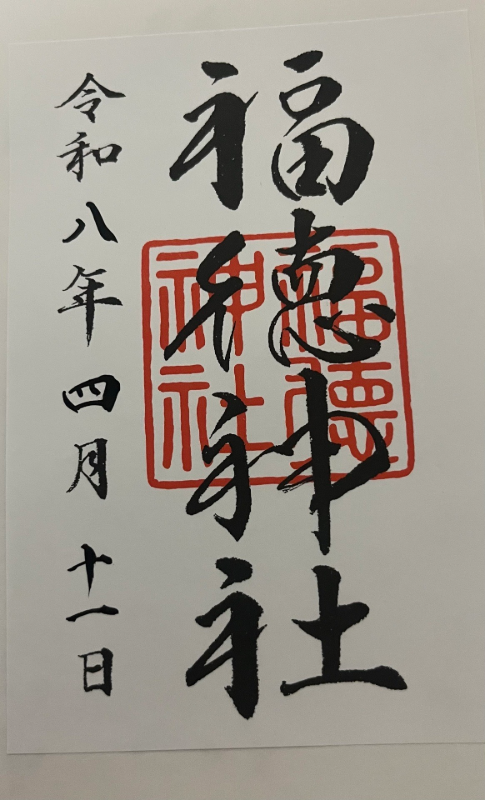 福徳神社
福德神社
令和八年四月十一日